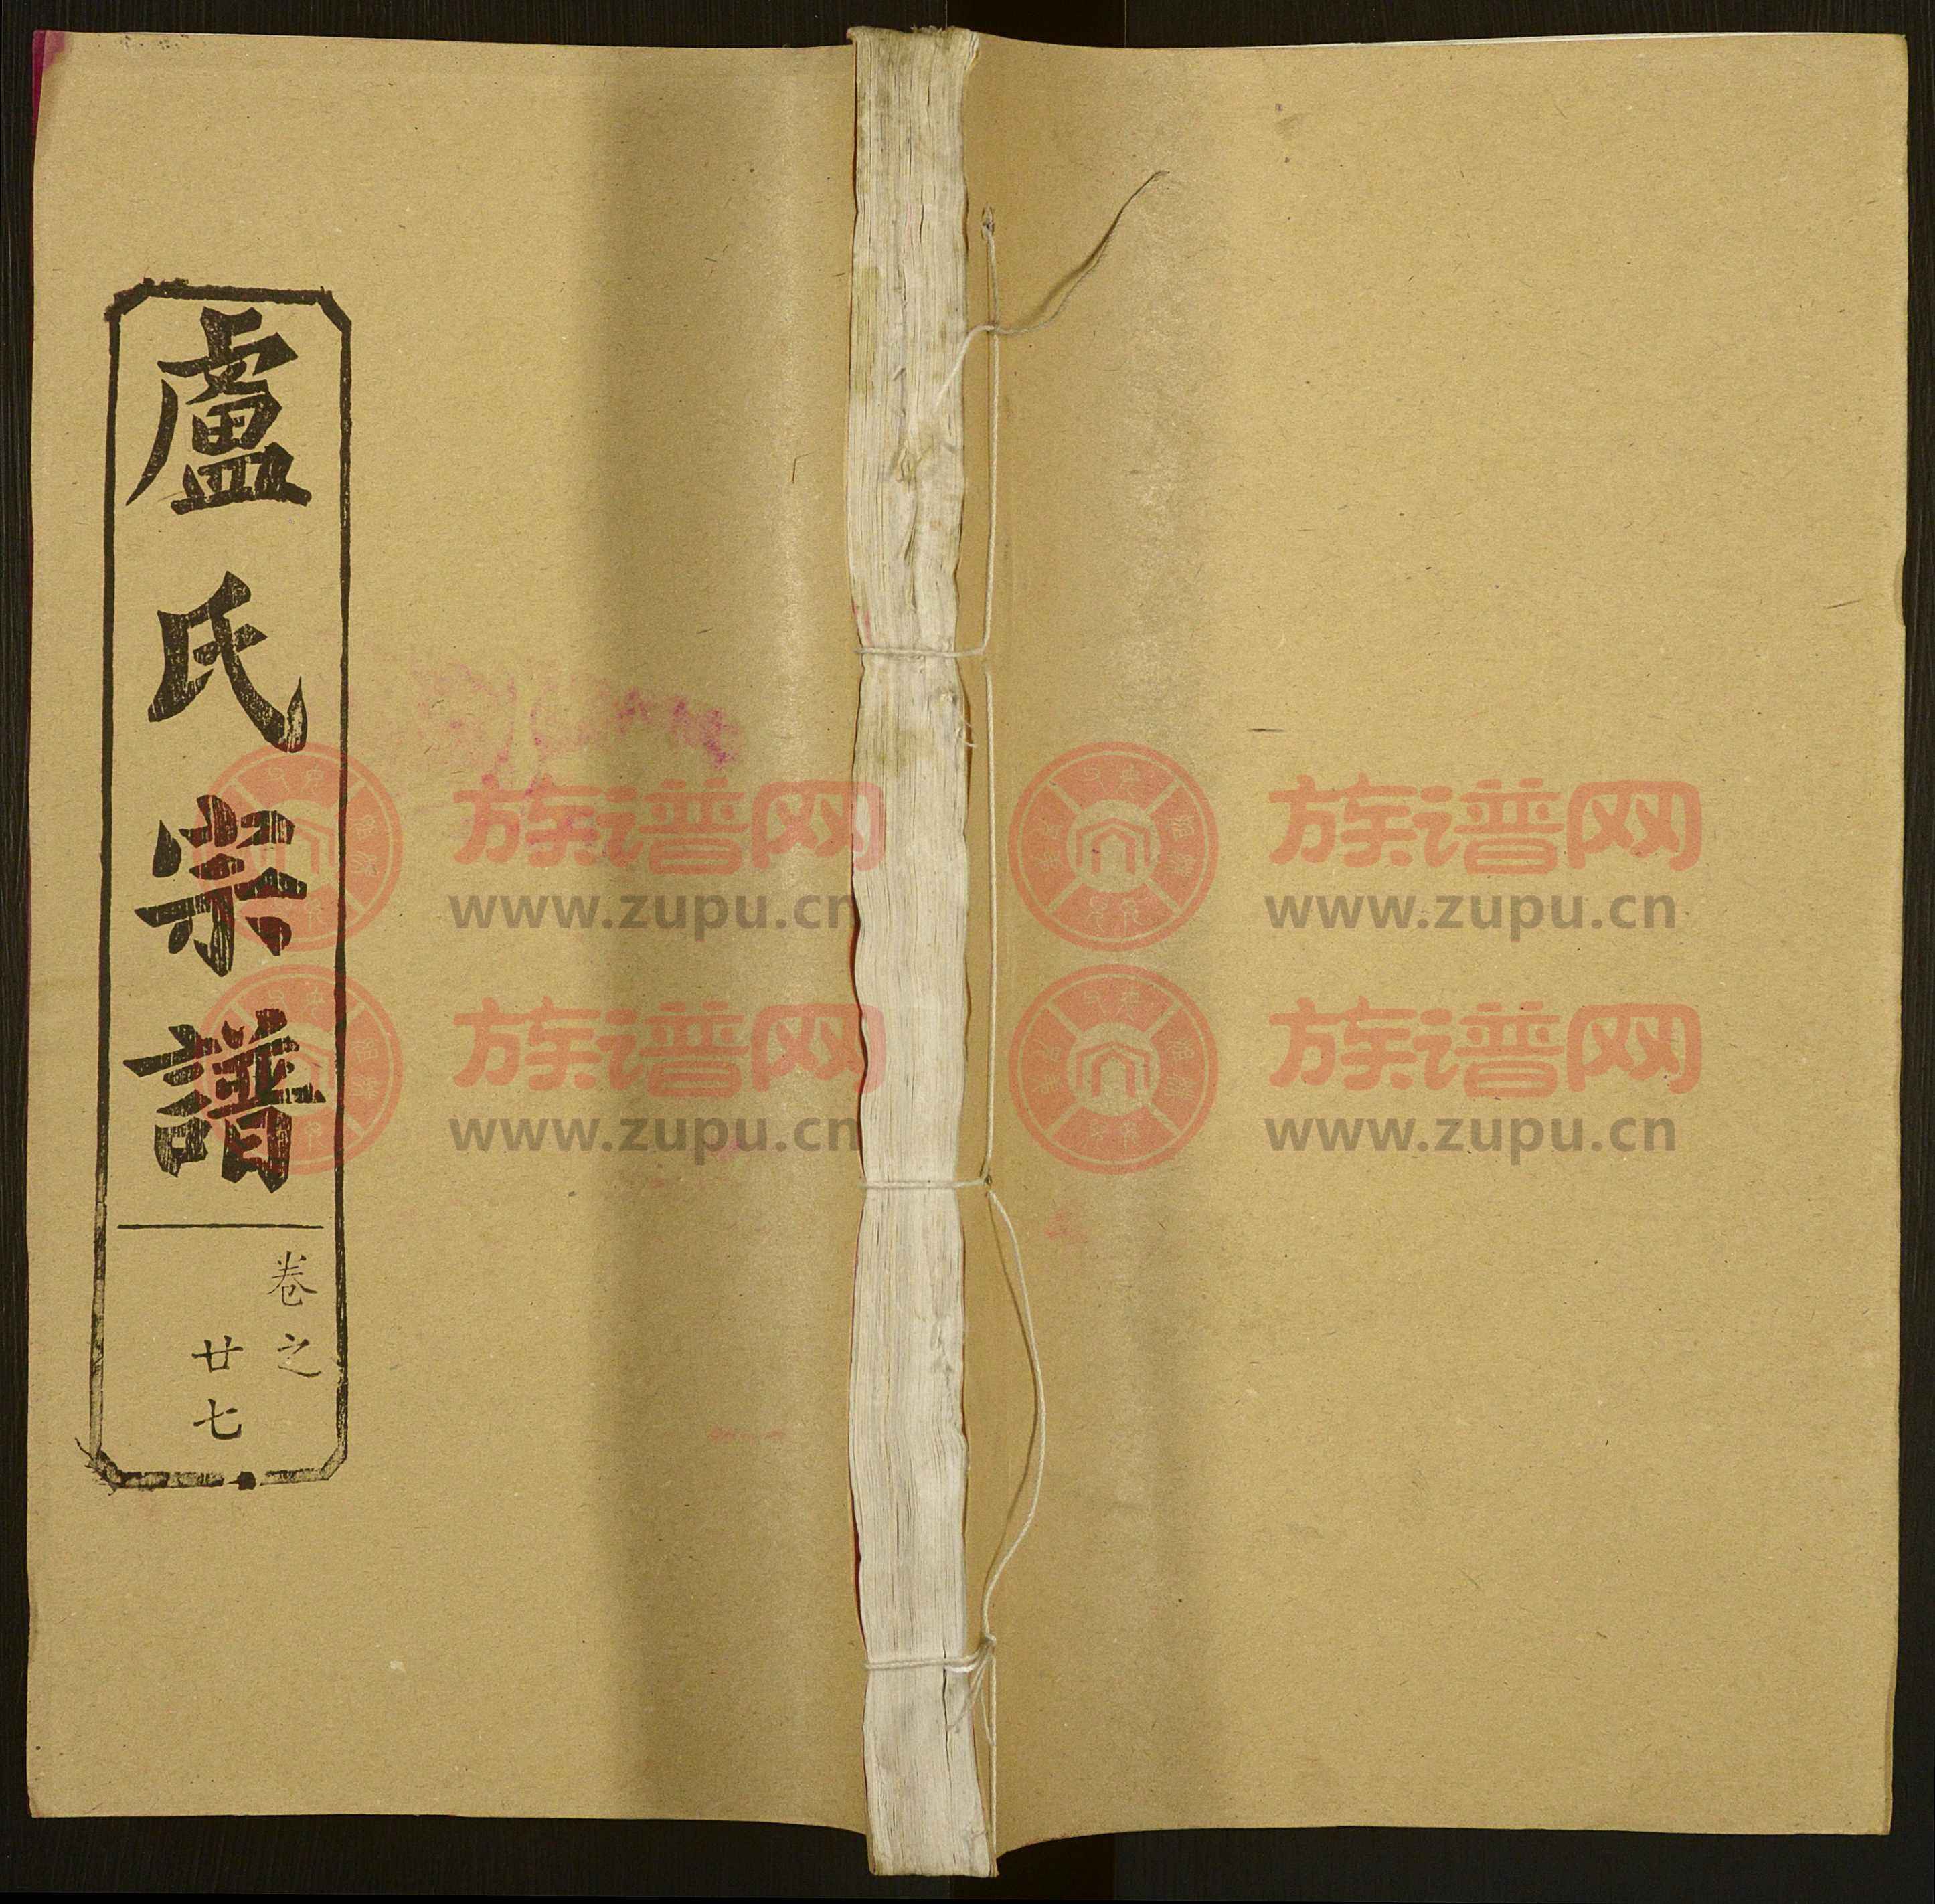 盧氏宗譜
卷之
廿七
族谱网
www.zupu.cn
族谱网
www.zupu.cn
族谱网
www.zupu.cn
族谱网
www.zupu.cn